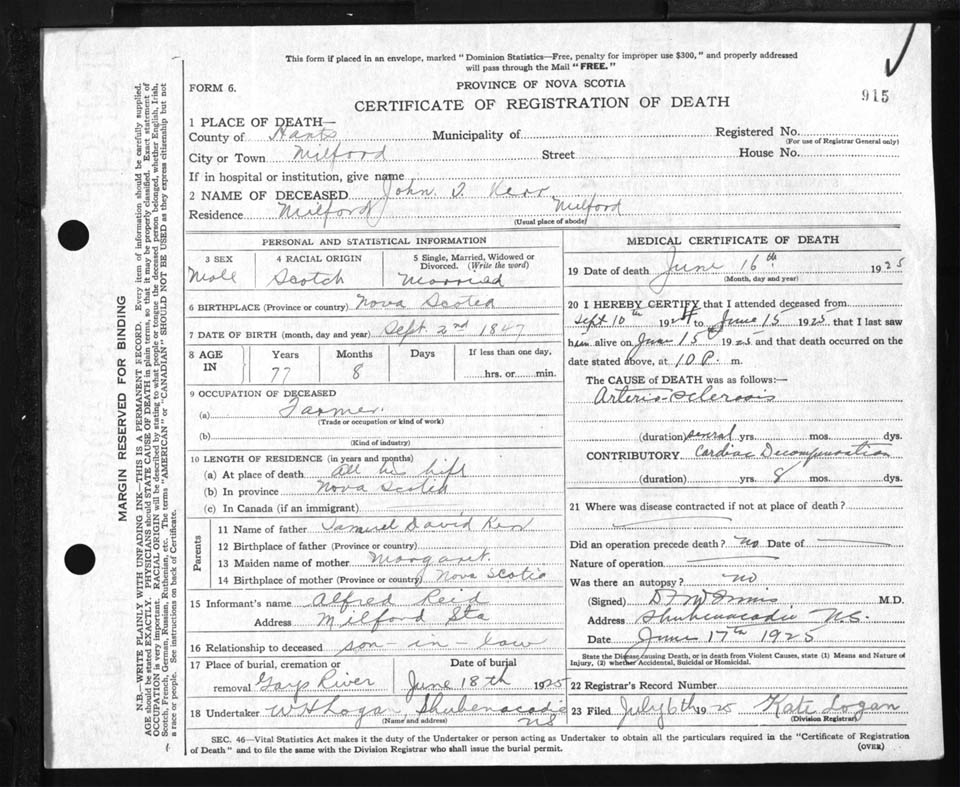 This form if placed in an envelope, marked "Dominion Statistics—Free, penalty for improper use $300," and properly addressed
will pass through the Mail "FREE."
FORM 6.
PROVINCE OF NOVA SCOTIA
915
CERTIFICATE OF REGISTRATION OF DEATH
1 PLACE OF DEATH—
County of Hants Municipality of Registered No.
(For use of Registrar General only)
City or Town Milford Street House No.
If in hospital or institution, give name
2 NAME OF DECEASED John Kerr
Residence Milford Milford
(Usual place of abode)
PERSONAL AND STATISTICAL INFORMATION
3 SEX 4 RACIAL ORIGIN 5 Single, Married, Widowed or
Divorced. (Write the word)
Male Scotch Married
6 BIRTHPLACE (Province or country) Nova Scotia
7 DATE OF BIRTH (month, day and year) Sept. 2nd 1847
8 AGE IN Years Months Days If less than one day,
77 8 hrs. or min.
9 OCCUPATION OF DECEASED
(a) Farmer.
(Trade or occupation or kind of work)
(b)
(Kind of industry)
10 LENGTH OF RESIDENCE (in years and months)
(a) At place of death all his life
(b) In province Nova Scotia
(c) In Canada (if an immigrant)
Parents
11 Name of father Samuel David Kerr
12 Birthplace of father (Province or country)
13 Maiden name of mother Margaret.
14 Birthplace of mother (Province or country) Nova Scotia
15 Informant's name Alfred Reid
Address Milford Sta
16 Relationship to deceased son-in-law
17 Place of burial, cremation or Date of burial
removal Gays River June 18th 1925
18 Undertaker W H Logan, Shubenacadie
(Name and address) NS
MEDICAL CERTIFICATE OF DEATH
19 Date of death June 16th 1925
(Month, day and year)
20 I HEREBY CERTIFY that I attended deceased from
Sept 10th 1924 to June 15 1925 that I last saw
him alive on June 15 1925 and that death occurred on the
date stated above, at 10 P. m.
The CAUSE OF DEATH was as follows:—
Arterio-sclerosis
(duration) several yrs. mos. dys.
CONTRIBUTORY Cardiac Decompensation
(duration) yrs. 8 mos. dys.
21 Where was disease contracted if not at place of death?
Did an operation precede death? No Date of
Nature of operation
Was there an autopsy? no
(Signed) M.D.
Address Shubenacadie N.S.
Date June 17th 1925
State the Disease causing Death, or in death from Violent Causes, state (1) Means and Nature of
Injury, (2) whether Accidental, Suicidal or Homicidal.
22 Registrar's Record Number
23 Filed July 6th 1925 Kate Logan
(Division Registrar)
SEC. 46—Vital Statistics Act makes it the duty of the Undertaker or person acting as Undertaker to obtain all the particulars required in the "Certificate of Registration
of Death" and to file the same with the Division Registrar who shall issue the burial permit.
(OVER)
MARGIN RESERVED FOR BINDING
N.B.—WRITE PLAINLY, WITH UNFADING INK—THIS IS A PERMANENT RECORD. Every item of information should be carefully supplied.
AGE should be stated EXACTLY. PHYSICIANS should STATE CAUSE OF DEATH in plain terms, so that it may be properly classified. Exact statement of
OCCUPATION is very important. RACIAL ORIGIN will be described by stating to what people or tongue the deceased person belonged, whether English, Irish,
Scotch, French, German, Russian, Ruthenian, etc. The terms "AMERICAN" or "CANADIAN" SHOULD NOT BE USED as they express citizenship but not
a race or people. See instructions on back of Certificate.